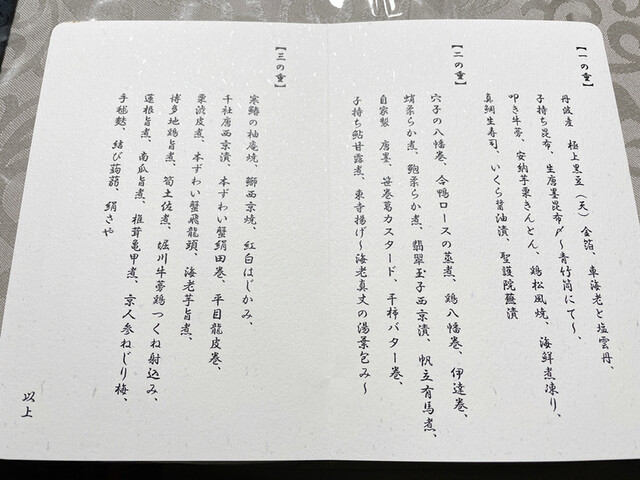 【一の重】
丹波産　極上黒豆（天）金箔、車海老と塩雲丹、
子持ち昆布、生唐墨昆布〆〜青竹筒にて〜、
叩き牛蒡、安納芋栗きんとん、鶏松風焼、海鮮煮凍り、
真鯛生寿司、いくら醤油漬、聖護院蕪漬
【二の重】
穴子の八幡巻、合鴨ロースの蒸煮、鶏八幡巻、伊達巻、
蛸柔らか煮、鮑柔らか煮、翡翠玉子西京漬、帆立有馬煮、
自家製　唐墨、笹巻葛カスタード、干柿バター巻、
子持ち鮎甘露煮、東寺揚げ〜海老真丈の湯葉包み〜
【三の重】
寒鰆の柚庵焼、鰤西京焼、紅白はじかみ、
千社唐西京漬、本ずわい蟹絹田巻、平目龍皮巻、
栗渋皮煮、本ずわい蟹飛龍頭、海老芋旨煮、
博多地鶏旨煮、筍土佐煮、堀川牛蒡鶏つくね射込み、
蓮根旨煮、南瓜旨煮、椎茸亀甲煮、京人参ねじり梅、
手毬麩、結び蒟蒻、絹さや
以上